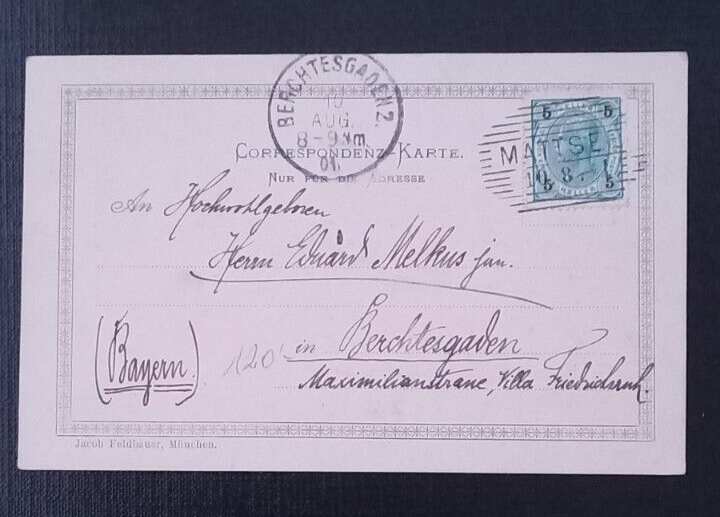 BERCHTESGADEN 2.
10
AUG.
8-9 Vm.
01.
5 5
HELLER
MATTSE
10.8.
5 5
HELLER
CORRESPONDENZ-KARTE.
NUR FÜR DIE ADRESSE
An Hochwohlgeboren
Herrn Eduard Melkus jun.
(Bayern)
120
in Berchtesgaden
Maximilianstrasse, Villa Friedrichsruh.
Jacob Feldbauer, München.